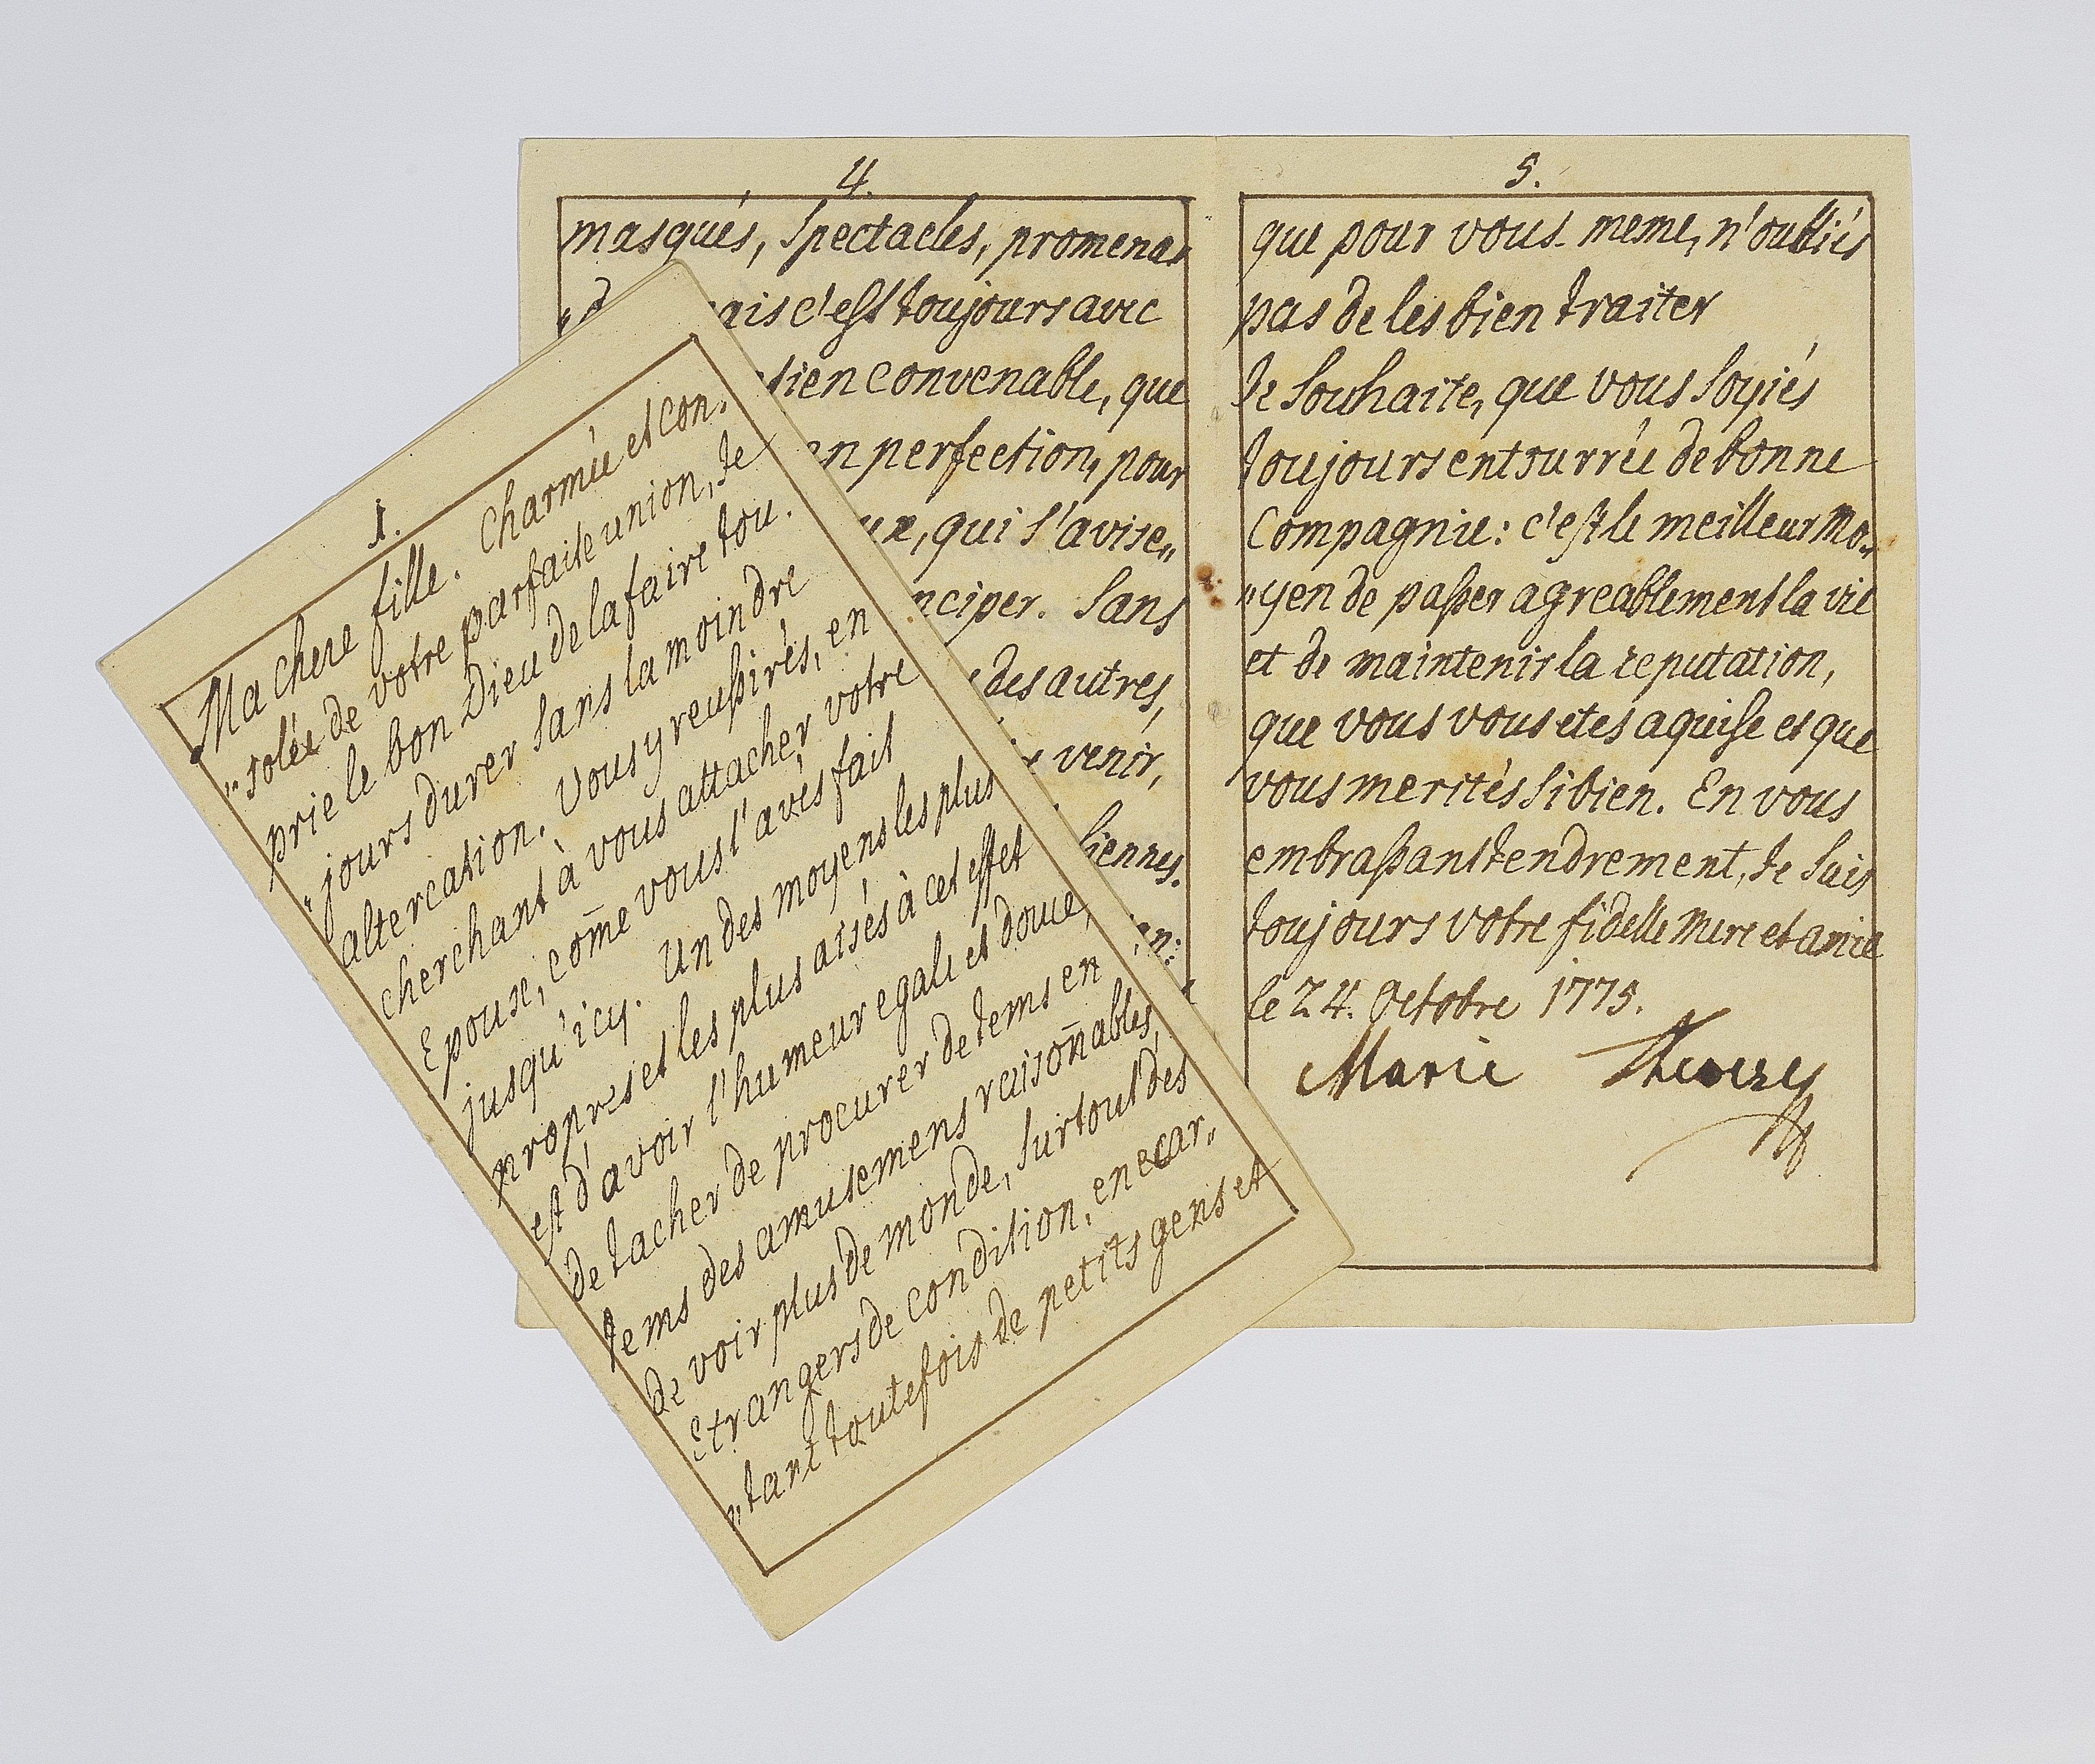 1.
Ma chere fille. Charmée et con.
„solée de votre parfaite union, Je
prie le bon Dieu de la faire tou.
„jours durer sans la moindre
altercation. Vous y reussirés, en
cherchant à vous attacher votre
Epoux, com̄e vous l'avés fait
jusqu'icy. Un des moyens les plus
propres et les plus aisés à cet effet
est d'avoir l'humeur egale et douce,
de tacher de procurer de tems en
tems des amusemens raison̄ables,
de voir plus de monde, surtout des
Etrangers de condition, en ecar„
„tant toutefois de petits gens et
4.
masqués, Spectacles, promena„
c'est toujours avec
convenable, que
en perfection, pour
qui s'avise„
Sans
des autres,
venir,
5.
que pour vous-meme, n'oubliés
pas de les bien traiter
Je Souhaite, que vous soyiés
toujours entourrée de bonne
Compagnie: c'est le meilleur mo„
„yen de passer agreablement la vie
et de maintenir la reputation,
que vous vous etes aquise et que
vous merités si bien. En vous
embrassant tendrement, Je suis
toujours votre fidelle Mere et amie
le 24. Octobre 1775.
Marie Therese